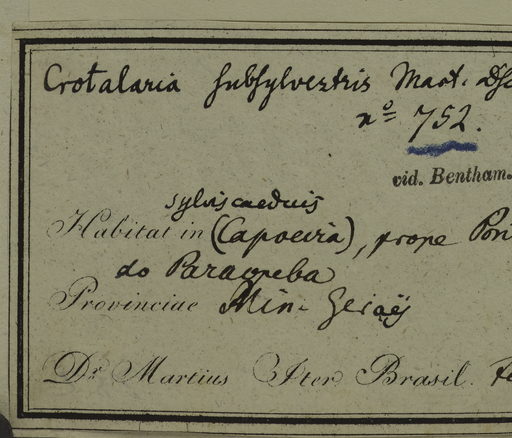 Crotalaria subsylvestris Mart.
nº 752.
vid. Bentham.
sylvis caeduis
Habitat in (Capoeira), prope
do Paraopeba
Provinciae Min. Geraës
Dr Martius Iter Brasil.